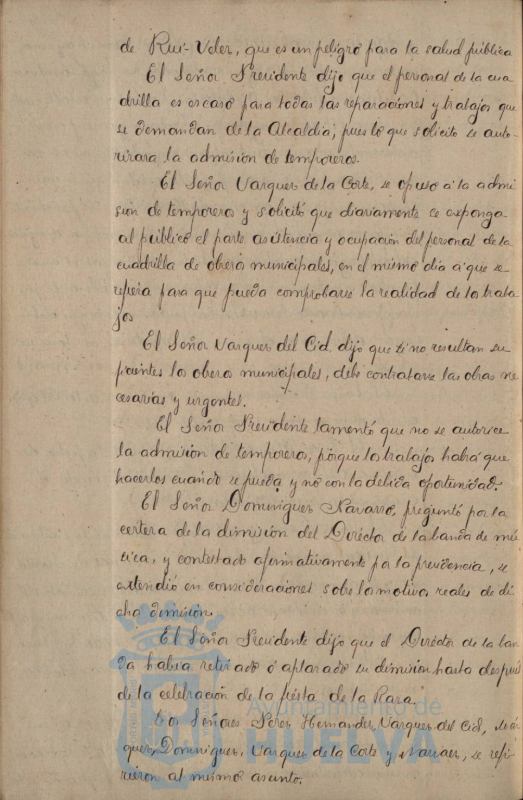 de Rui-Velez, que es un peligro para la salud pública
El Señor Presidente dijo que el personal de la cua
drilla es escaso para todas las reparaciones y trabajos que
se demandan de la Alcaldia; pues to que solicito se auto-
rizara la admision de temporeros.
El Señor Vazquez de la Corte, se opuso á la admi
sion de temporeros y solicitó que diariamente se exponga
al público el parte asistencia y ocupación del personal de la
cuadrilla de obras municipales, en el mismo dia a que se
refiera para que pueda comprobarse la realidad de los traba
jos
El Señor Vazquez del Cid, dijo que si no resultan su
ficientes los obreros municipales, debe contratarse las obras ne
cesarias y urgentes.
El Señor Presidente lamentó que no se autorice
la admision de temporeros, porque los trabajos habrá que
hacerlos cuando se pueda y no con la debida oportunidad.
El Señor Dominguez Navarro, preguntó por la
certeza de la dimision del Director de la banda de mú
sica, y contestado afirmativamente por la presidencia, se
extendió en consideraciones sobre los motivos reales de di
cha dimision.
El Señor Presidente dijo que el Director de la ban
da habia retirado ó aplazado su dimision hasta despues
de la celebración de la fiesta de la Raza.
Los Señores Perez Hernandez, Vazquez del Cid,
quez, Dominguez, Vazquez de la Corte y Narvaez, se refi
rieron al mismo asunto.
Ayuntamiento de
HUELVA